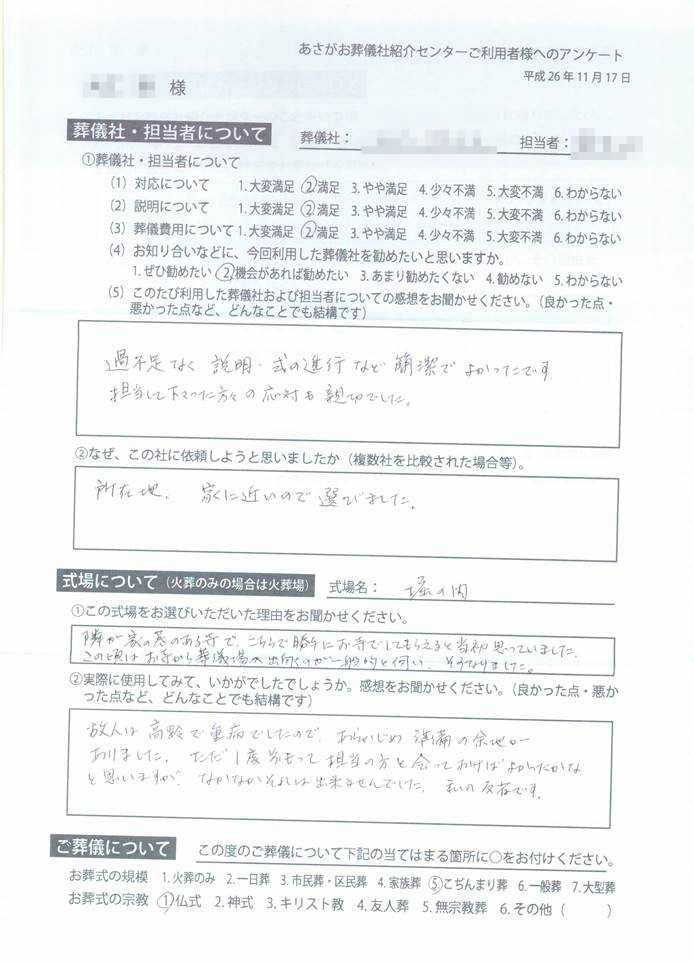 あさがお葬儀社紹介センターご利用者様へのアンケート
平成26年11月17日
様
葬儀社・担当者について 葬儀社： 担当者：
①葬儀社・担当者について
（1）対応について 1.大変満足 ②満足 3.やや満足 4.少々不満 5.大変不満 6.わからない
（2）説明について 1.大変満足 ②満足 3.やや満足 4.少々不満 5.大変不満 6.わからない
（3）葬儀費用について 1.大変満足 ②満足 3.やや満足 4.少々不満 5.大変不満 6.わからない
（4）お知り合いなどに、今回利用した葬儀社を勧めたいと思いますか。
1.ぜひ勧めたい ②機会があれば勧めたい 3.あまり勧めたくない 4.勧めない 5.わからない
（5）このたび利用した葬儀社および担当者についての感想をお聞かせください。（良かった点・
悪かった点など、どんなことでも結構です）
過不足なく 説明・式の進行など 簡潔で よかったです
担当して下さった方々の応対も 親切でした。
②なぜ、この社に依頼しようと思いましたか（複数社を比較された場合等）。
所在地、 家に近いので選びました。
式場について（火葬のみの場合は火葬場） 式場名： 堀の内
①この式場をお選びいただいた理由をお聞かせください。
隣が家の墓のある寺で、こちらで勝手にお寺でしてもらえると当初思っていました。
この頃はお寺から葬儀場へ出向くのが一般的と伺い、そうなりました。
②実際に使用してみて、いかがでしたでしょうか。感想をお聞かせください。（良かった点・悪か
った点など、どんなことでも結構です）
故人は高齢で重病でしたので、あらかじめ 準備の余地が
ありました。ただ1度 前もって担当の方と会っておけばよかったかな
と思いますが、なかなかそれは出来ませんでした。私の反省です。
ご葬儀について この度のご葬儀について下記の当てはまる箇所に○をお付けください。
お葬式の規模 1.火葬のみ 2.一日葬 3.市民葬・区民葬 4.家族葬 ⑤こぢんまり葬 6.一般葬 7.大型葬
お葬式の宗教 ①仏式 2.神式 3.キリスト教 4.友人葬 5.無宗教葬 6.その他（ ）